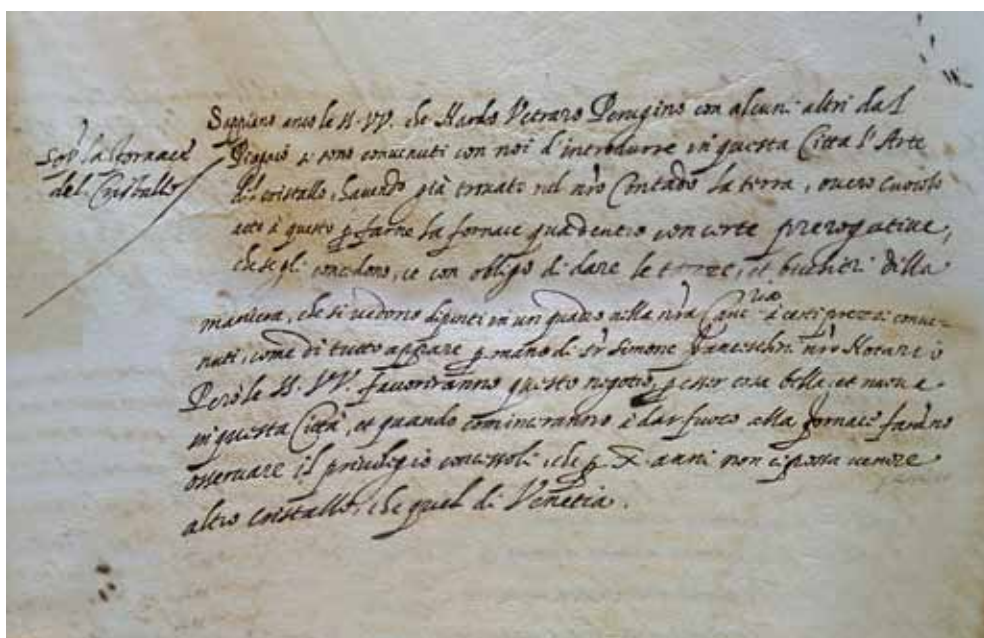 Sop.ª la fornace
del Cristallo
Sappiano anco le SS. VV. che Nardo Vetraro Perugino con alcuni altri dal
Piegaio si sono convenuti con noi d'introdurre in questa Città l'Arte
del cristallo, havendo già trovato nel nr̄o Contado la terra, overo cuocolo
atto à questo p farne la fornace quà dentro con certe prerogative,
che se gli concedono, et con obligo di dare le tazze, et bicchieri della
maniera, che si vedono dipinti in un quadro nella nr̄a Canc.ria à certi prezzi conve-
nuti, come di tutto appare p mano di sr̄ Simone nr̄o Notario
Però le SS. VV. favoriranno questo negotio, p esser cosa bella, et nuova
in questa Città, et quando cominceranno à dar fuoco alla fornace farāno
osservare il privilegio concessoli, che p X. anni non ci possa venire
altro cristallo, che quel di Venetia.